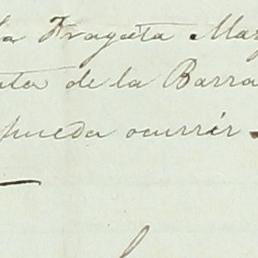 la Fragata Mar
nta de la Barra
pueda ocurrir